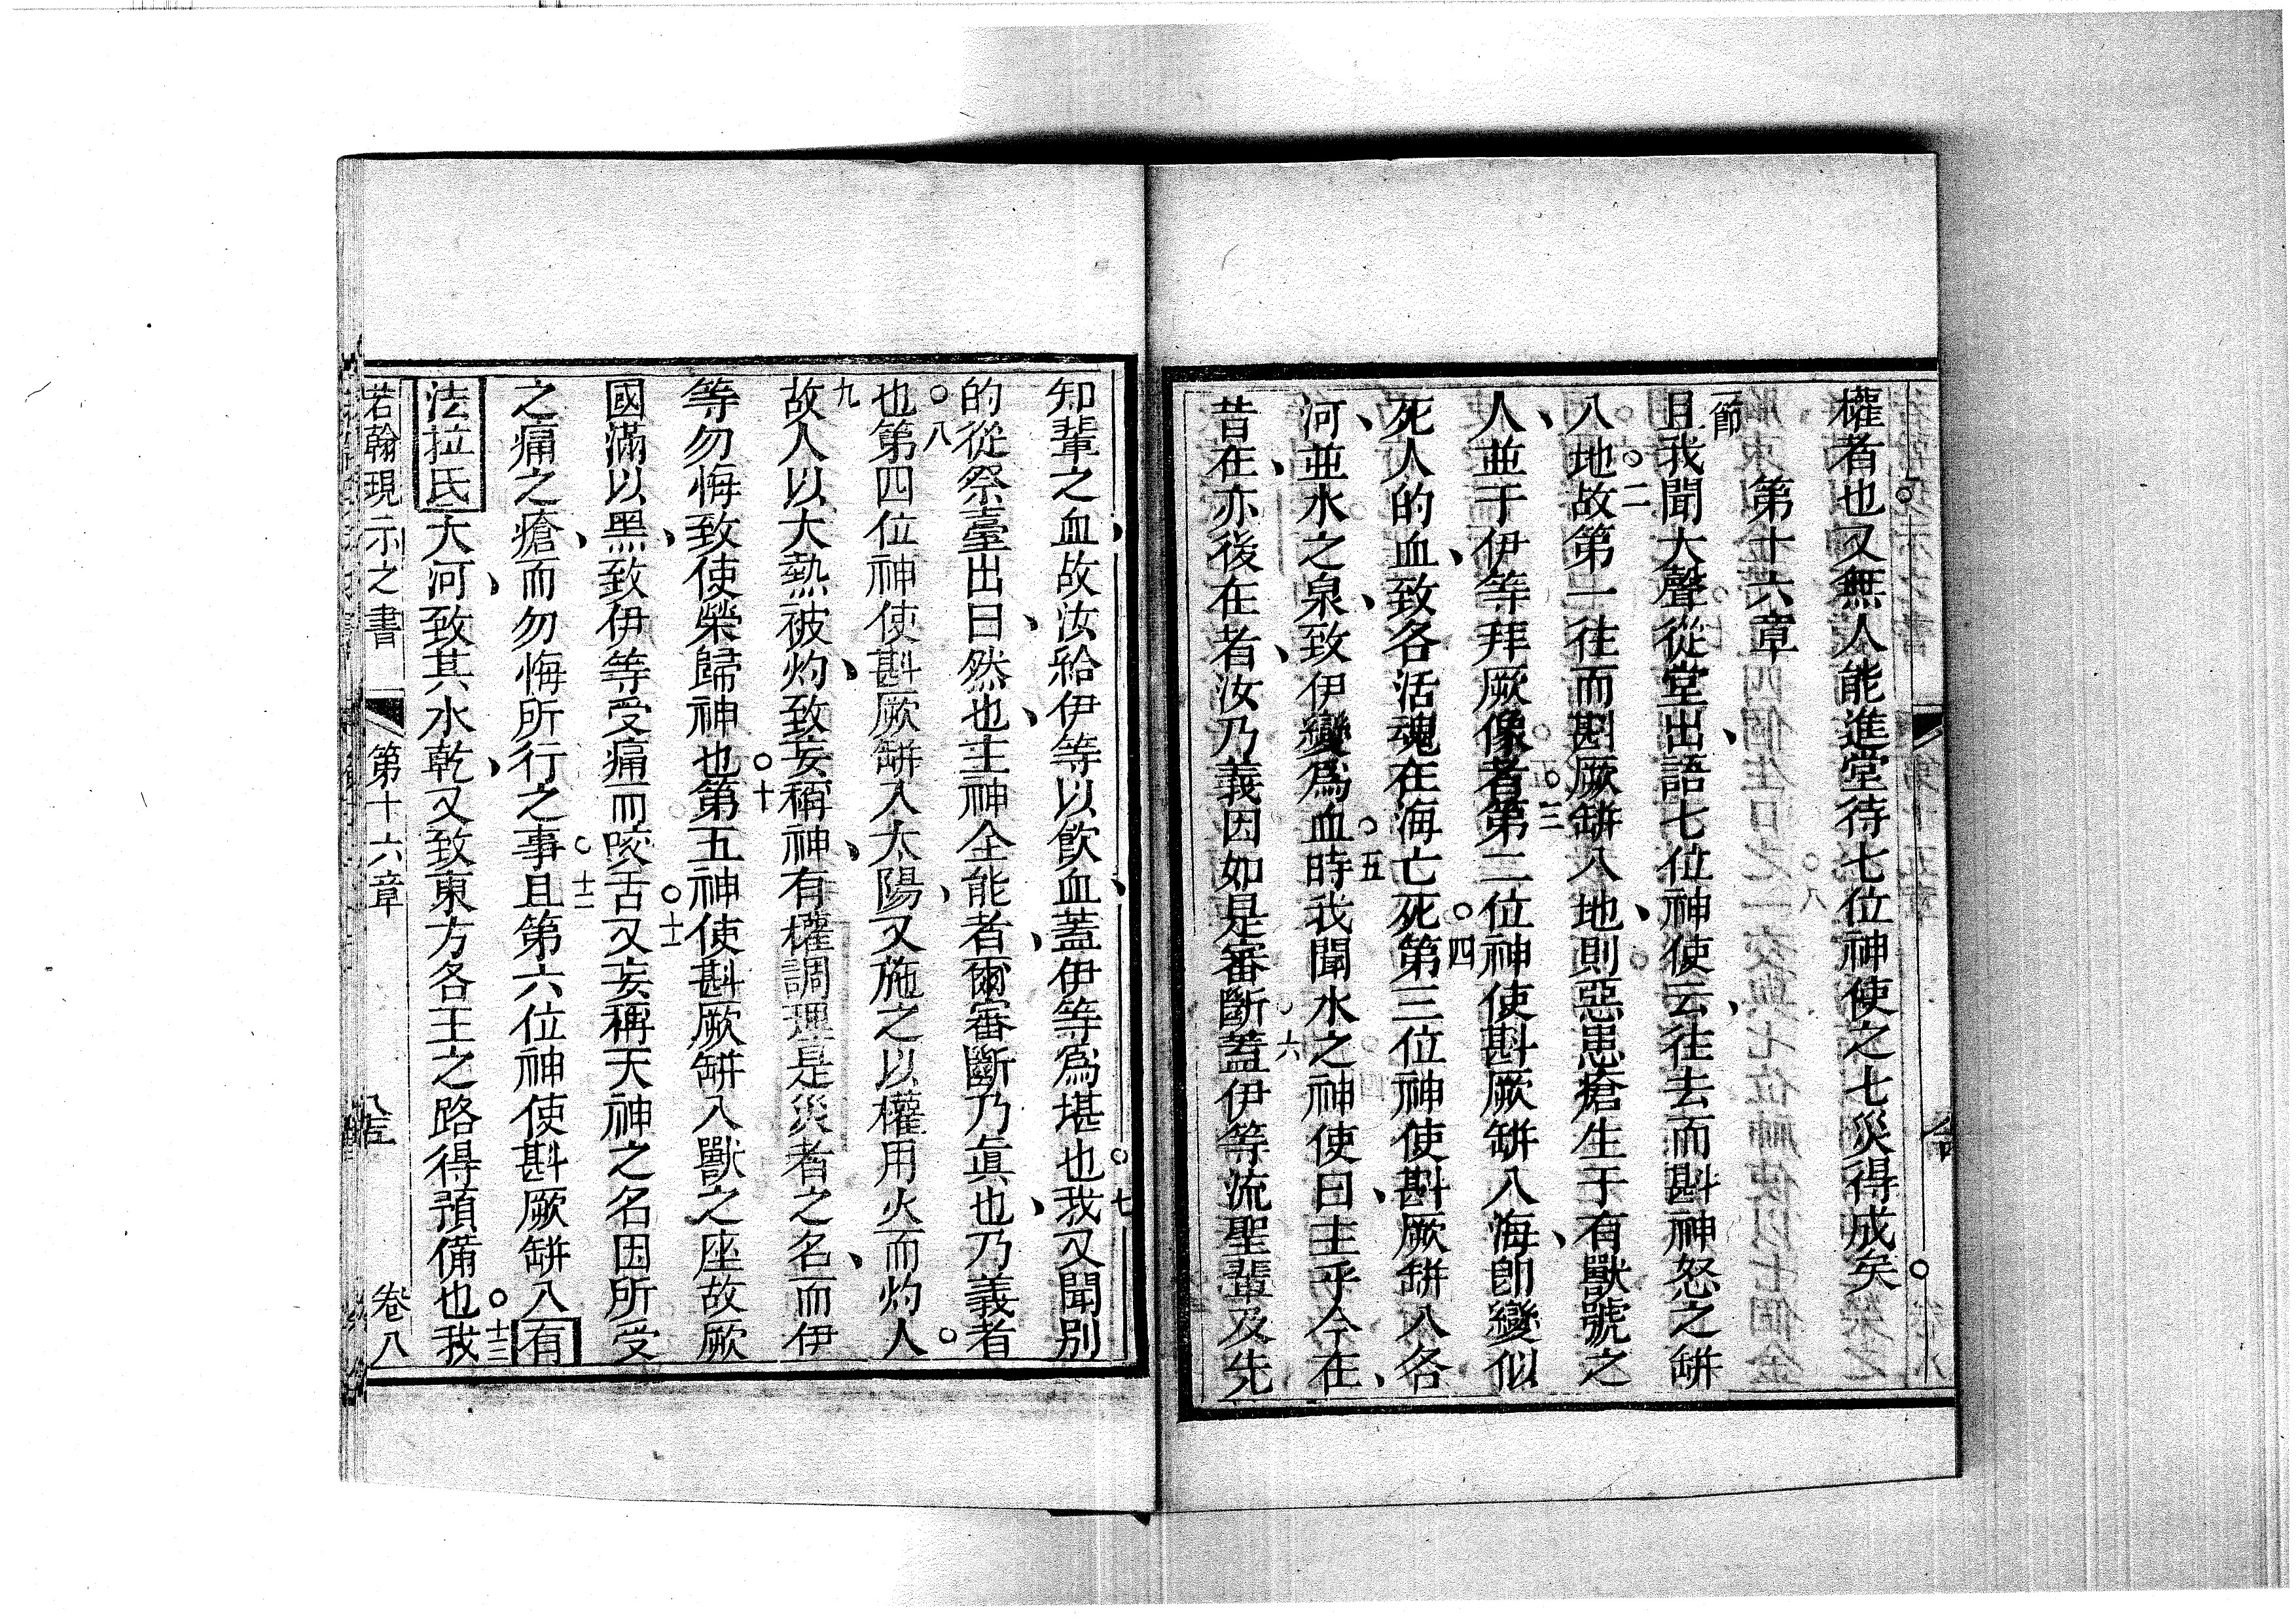 權者也又無人能進堂待七位神使之七災得成矣
第十六章
一節
且我聞大聲從堂出語七位神使云往去而斟神怒之缾
八地故第一往而斟厥缾入地則惡患瘡生于有獸號之
二
人並于伊等拜厥像者第二位神使斟厥缾入海卽變似
三
死人的血致各活魂在海亡死第三位神使斟厥缾入各
四
河並水之泉致伊變爲血時我聞水之神使曰主乎今在
五
昔在亦後在者汝乃義因如是審斷蓋伊等流聖輩及先
六
知輩之血故汝給伊等以飲血蓋伊等爲堪也我又聞別
七
的從祭臺出曰然也主神全能者爾審斷乃眞也乃義者
也第四位神使斟厥缾入太陽又施之以權用火而灼人
八
故人以大熱被灼致妄稱神有權調理是災者之名而伊
九
等勿悔致使榮歸神也第五神使斟厥缾入獸之座故厥
十
國滿以黑致伊等受痛而咬舌又妄稱天神之名因所受
十一
之痛之瘡而勿悔所行之事且第六位神使斟厥缾入有
十二
法拉氏大河致其水乾又致東方各王之路得預備也我
十三
若翰現示之書 第十六章 卷八